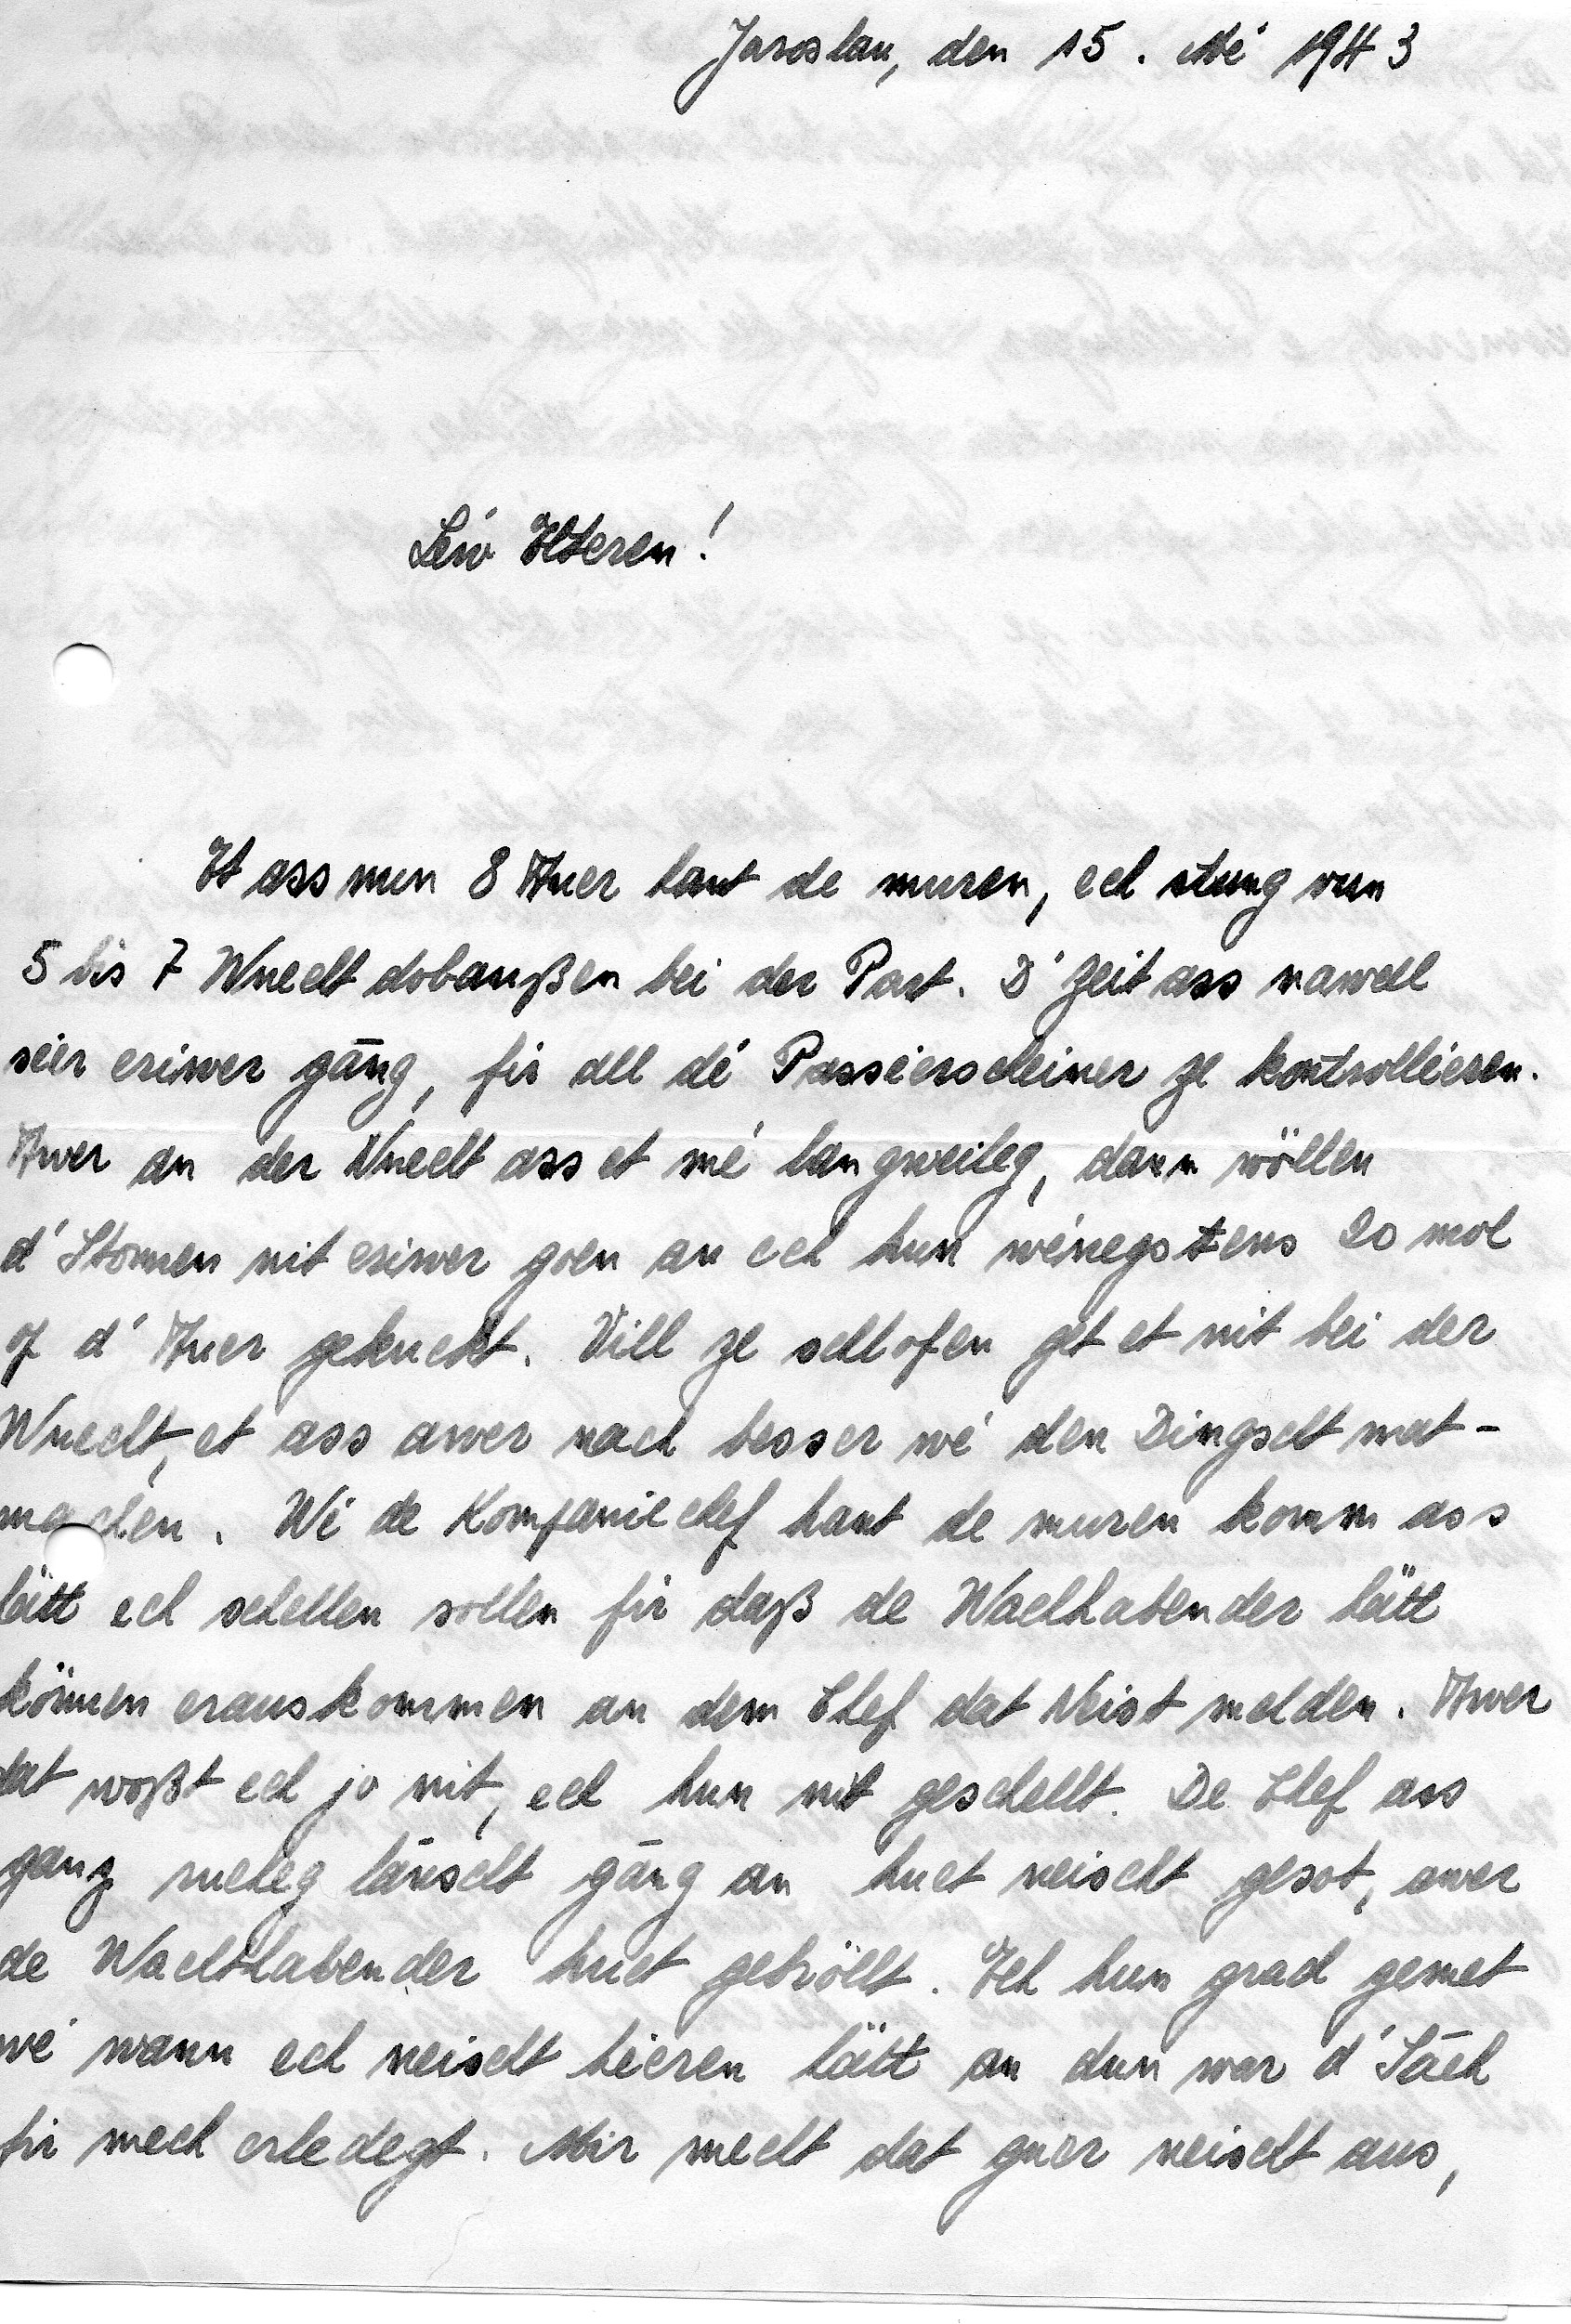 Jaroslau, den 15. Mé 1943
Léiw Elteren!
Et ass nun 8 Auer haut de muren, ech stung vun
5 bis 7 Wuecht dobaußen bei der Part. D'Zeit ass nawell
séier eriwer gāng, fir all dé Passéierscheiner ze kontrolléieren.
Awer an der Nuecht ass et mé langweileg, dann wöllen
d'Stonnen nit eriwer goen an ech hun wéinegstens 20 mol
of d'Auer gekuckt. Vill ze schlofen get et nit bei der
Wuecht, et ass awer nach besser wé den Dingscht mat-
machen. Wé de Kompaniechef haut de muren komm ass
hätt ech schellen sollen fir daß de Wachhabender hätt
können erauskommen an dem Chef dat Neist melden. Awer
dat woßt ech jo nit, ech hun nit geschellt. De Chef ass
ganz rueheg lānscht gāng an huet neischt gesot, awer
de Wachthabender huet gebröllt. Ech hun grad gemet
wé wann ech neischt héieren hätt an dun war d'Sāch
fir mech erledegt. Mir mecht dat guer neischt aus,